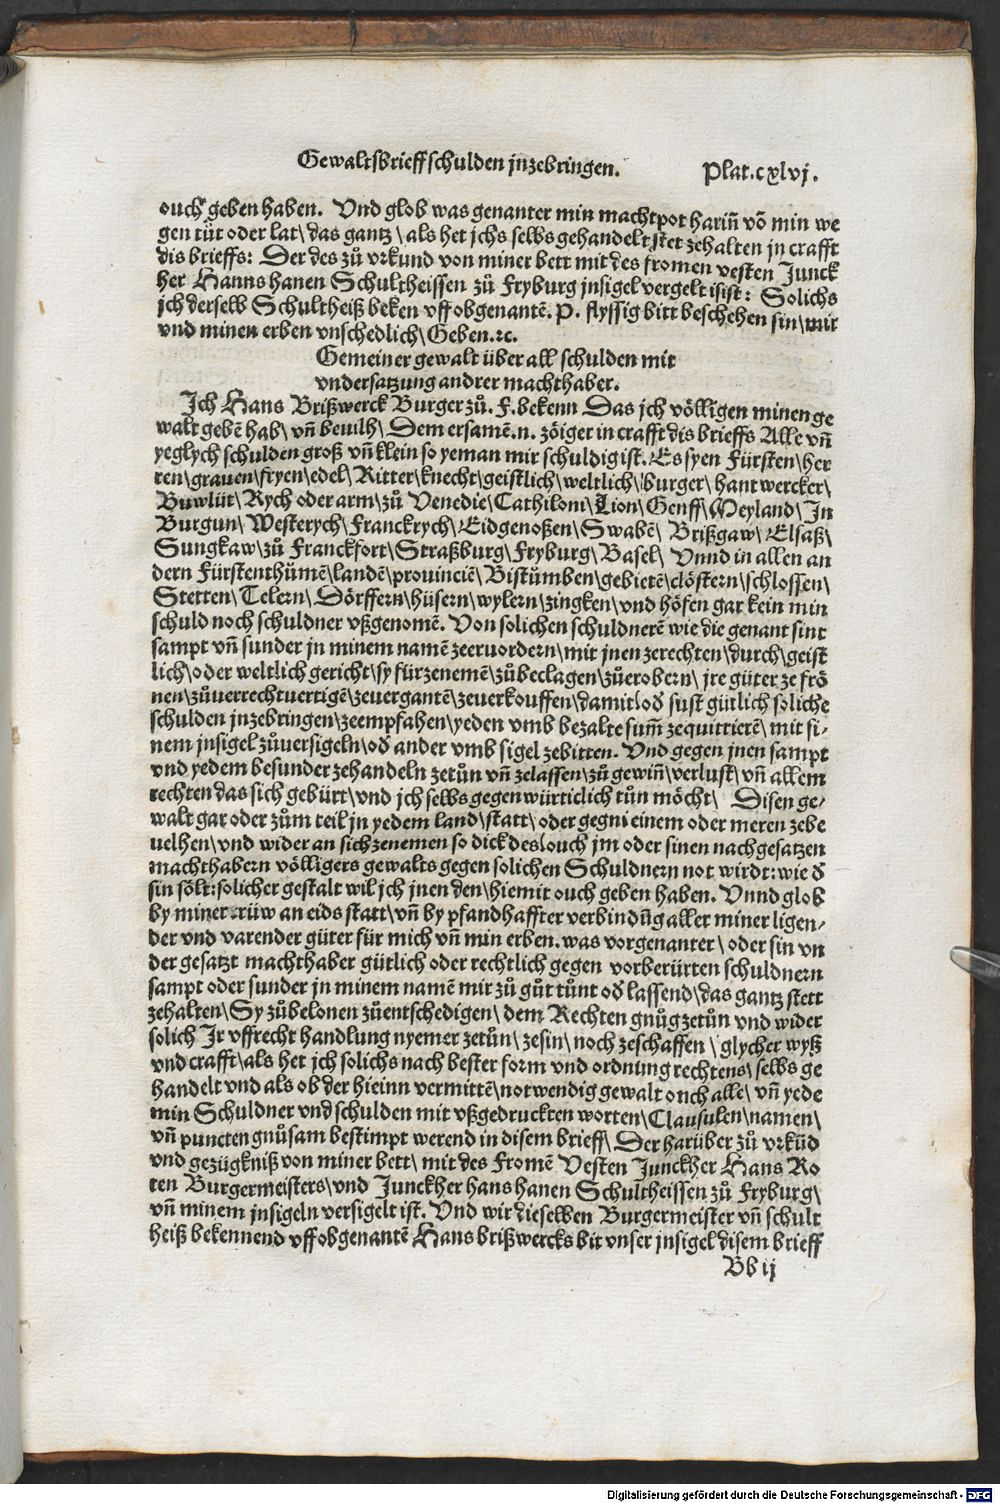 Gewaltsbrieff schulden jnzebringen.
Plat.cxlvj.
ouch geben haben. Vnd glob was genanter min machtpot hariñ võ min we
gen tůt oder lat\ das gantz\ als het jchs selbs gehandelt stet zehalten jn crafft
dis brieffs: Der des zů vrkund von miner bett mit des fromen vesten Junck
her Hanns hanen Schultheissen zů Fryburg jnsigel vergelt isist: Solichs
jch derselb Schultheiß beken vff obgenantẽ. P. flyssig bitt beschehen sin\ mir
vnd minen erben vnschedlich\ Geben.⁊c.
Gemeiner gewalt über all schulden mit
vndersatzung andrer machthaber.
Ich Hans Brißwerck Burger zů. F. bekenn Das jch völligen minen ge
walt gebẽ hab\ vñ beuilh\ Dem ersamẽ.n. zöiger in crafft dis brieffs Alle vñ
yeglych schulden groß vñ klein so yeman mir schuldig ist. Es syen Fürsten\ her
ren\ grauen\ fryen\ edel\ Ritter\ knecht\ geistlich\ weltlich\ burger\ hantwercker\
Buwlüt\ Rych oder arm\ zů Venedie\ Cathiloni\ Lion\ Genff\ Meyland\ In
Burgun\ Westerych\ Franckrych\ Eidgenoßen\ Swabẽ\ Brißgaw\ Elsaß\
Sungkaw\ zů Franckfort\ Straßburg\ Fryburg\ Basel\ Vnnd in allen an
dern Fürstenthůmẽ\ landẽ\ prouinciẽ\ Bistůmben\ gebietẽ\ clöstern\ schlossen\
Stetten\ Telern\ Dörffern\ hüsern\ wylern\ zingken\ vnd höfen gar kein min
schuld noch schuldner vßgenomẽ. Von solichen schuldnerẽ wie die genant sint
sampt vñ sunder jn minem namẽ zeeruordern\ mit jnen zerechten\ durch\ geist
lich\ oder weltlich gericht\ sy fürzenemẽ\ zůbeclagen\ zůerobern\ jre güter ze frö
nen\ zůuerrechtuertigẽ\ zeuergantẽ\ zeuerkouffen\ damit\ oď sust gütlich soliche
schulden jnzebringen\ zeempfahen\ yeden vmb bezalte sum̃ zequittierẽ\ mit si⸗
nem jnsigel zůuersigeln\ oď ander vmb sigel zebitten. Vnd gegen jnen sampt
vnd yedem besunder zehandeln zetůn vñ zelassen\ zů gewiñ\ verlust\ vñ allem
rechten das sich gebürt\ vnd jch selbs gegenwürticlich tůn möcht\ Disen ge⸗
walt gar oder zům teil jn yedem land\ statt\ oder gegni einem oder meren zebe
uelhen\ vnd wider an sich zenemen so dick des\ ouch jm oder sinen nachgesatzen
machthabern völligers gewalts gegen solichen Schuldnern not wirdt: wie ď
sin sölt: solicher gestalt wil jch jnen den\ hiemit ouch geben haben. Vnnd glob
by miner trüw an eids statt\ vñ by pfandhaffter verbindũg aller miner ligen⸗
der vnd varender güter für mich vñ min erben. was vorgenanter\ oder sin vn
der gesatzt machthaber gütlich oder rechtlich gegen vorberürten schuldnern
sampt oder sunder jn minem namẽ mir zů gůt tůnt oď lassend\ das gantz stett
zehalten\ Sy zůbelonen zůentschedigen\ dem Rechten gnůg zetůn vnd wider
solich Ir vffrecht handlung nyemer zetůn\ zesin\ noch zeschaffen\ glycher wyß
vnd crafft\ als het jch solichs nach bester form vnd ordnung rechtens\ selbs ge
handelt vnd als ob der hieinn vermittẽ\ notwendig gewalt ouch alle\ vñ yede
min Schuldner vnd schulden mit vßgedruckten worten\ Clausulen\ namen\
vñ puncten gnůsam bestimpt werend in disem brieff\ Der harüber zů vrkũd
vnd gezügkniß von miner bett\ mit des Fromẽ Vesten Junckher Hans Ro
ten Burgermeisters\ vnd Junckher hans hanen Schultheissen zů Fryburg\
vñ minem jnsigeln versigelt ist. Vnd wir dieselben Burgermeister vñ schult
heiß bekennend vff obgenantẽ Hans brißwercks bit vnser jnsigel disem brieff
Bb ij
Digitalisierung gefördert durch die Deutsche Forschungsgemeinschaft - DFG